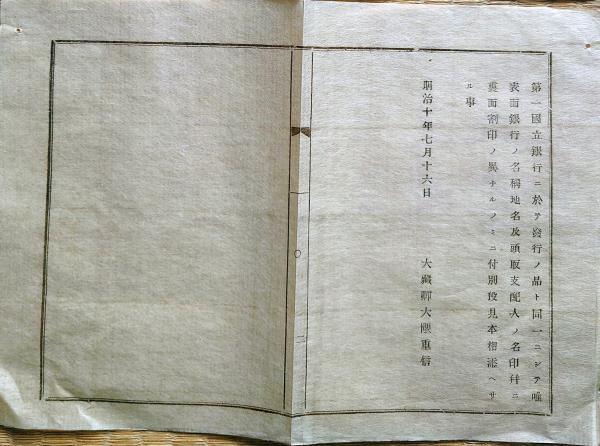 第一國立銀行ニ於テ發行ノ品ト同一ニシテ唯
表面銀行ノ名稱地名及頭取支配人ノ名印幷ニ
裏面割印ノ異ナルノミニ付別段見本相添ヘサ
ル事
明治十年七月十六日
大藏卿大隈重信
〇
二